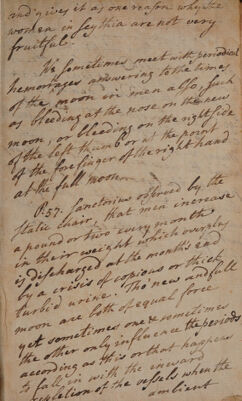 and gives it as one reason why the
women in Scythia are not very
fruitful.
We sometimes meet with periodical
hemorrages answering to the times
of the moon in men also, such
as bleeding at the nose on the new
moon, or bleeding on the right side
of the left thumb or at the point
of the forefinger of the right hand
at the full moon.
P. 57. Sanctorius observed by the
Static Chair, that men increase
a pound or two every month
in their weight which overplus
is discharged at the month's end
by a crisis of copious or thick
turbid urine. The new and full
moon are both of equal force
yet sometimes one & sometimes
the other only influence the periods
according as this or that happens
to fall in with the
repletion of the vessels when the
ambient